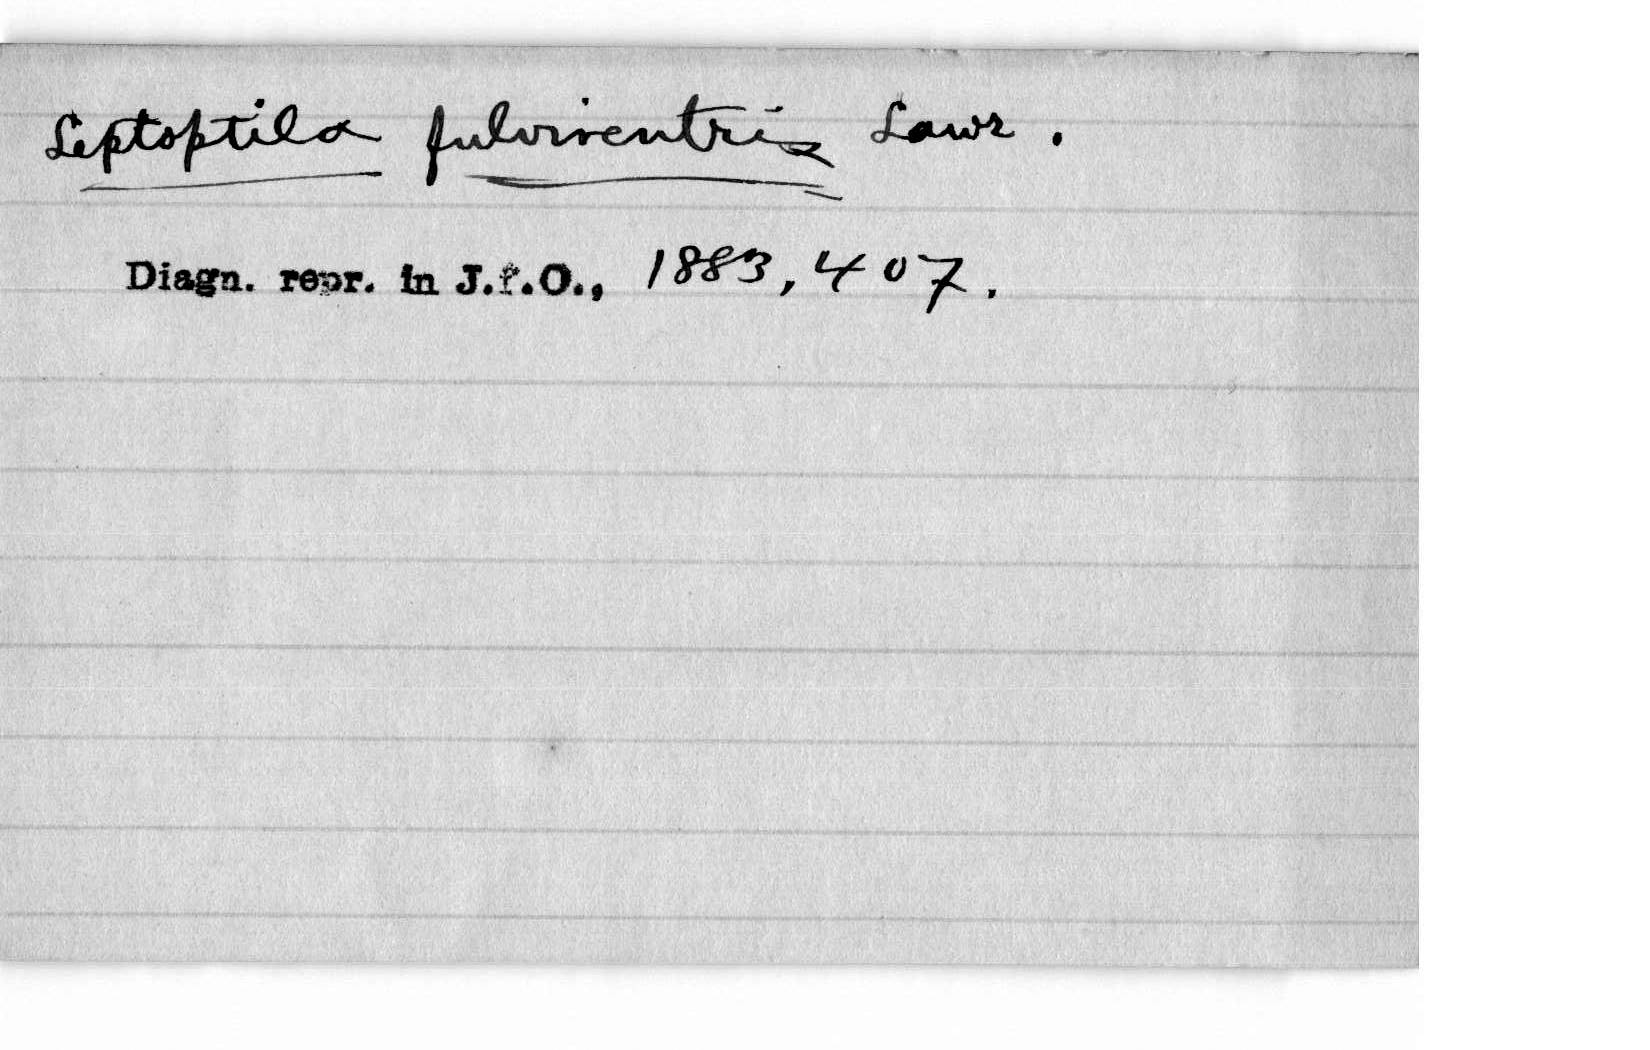 Leptoptila fulviventris Lawr.
Diagn. repr. in J.f.O., 1883, 407.